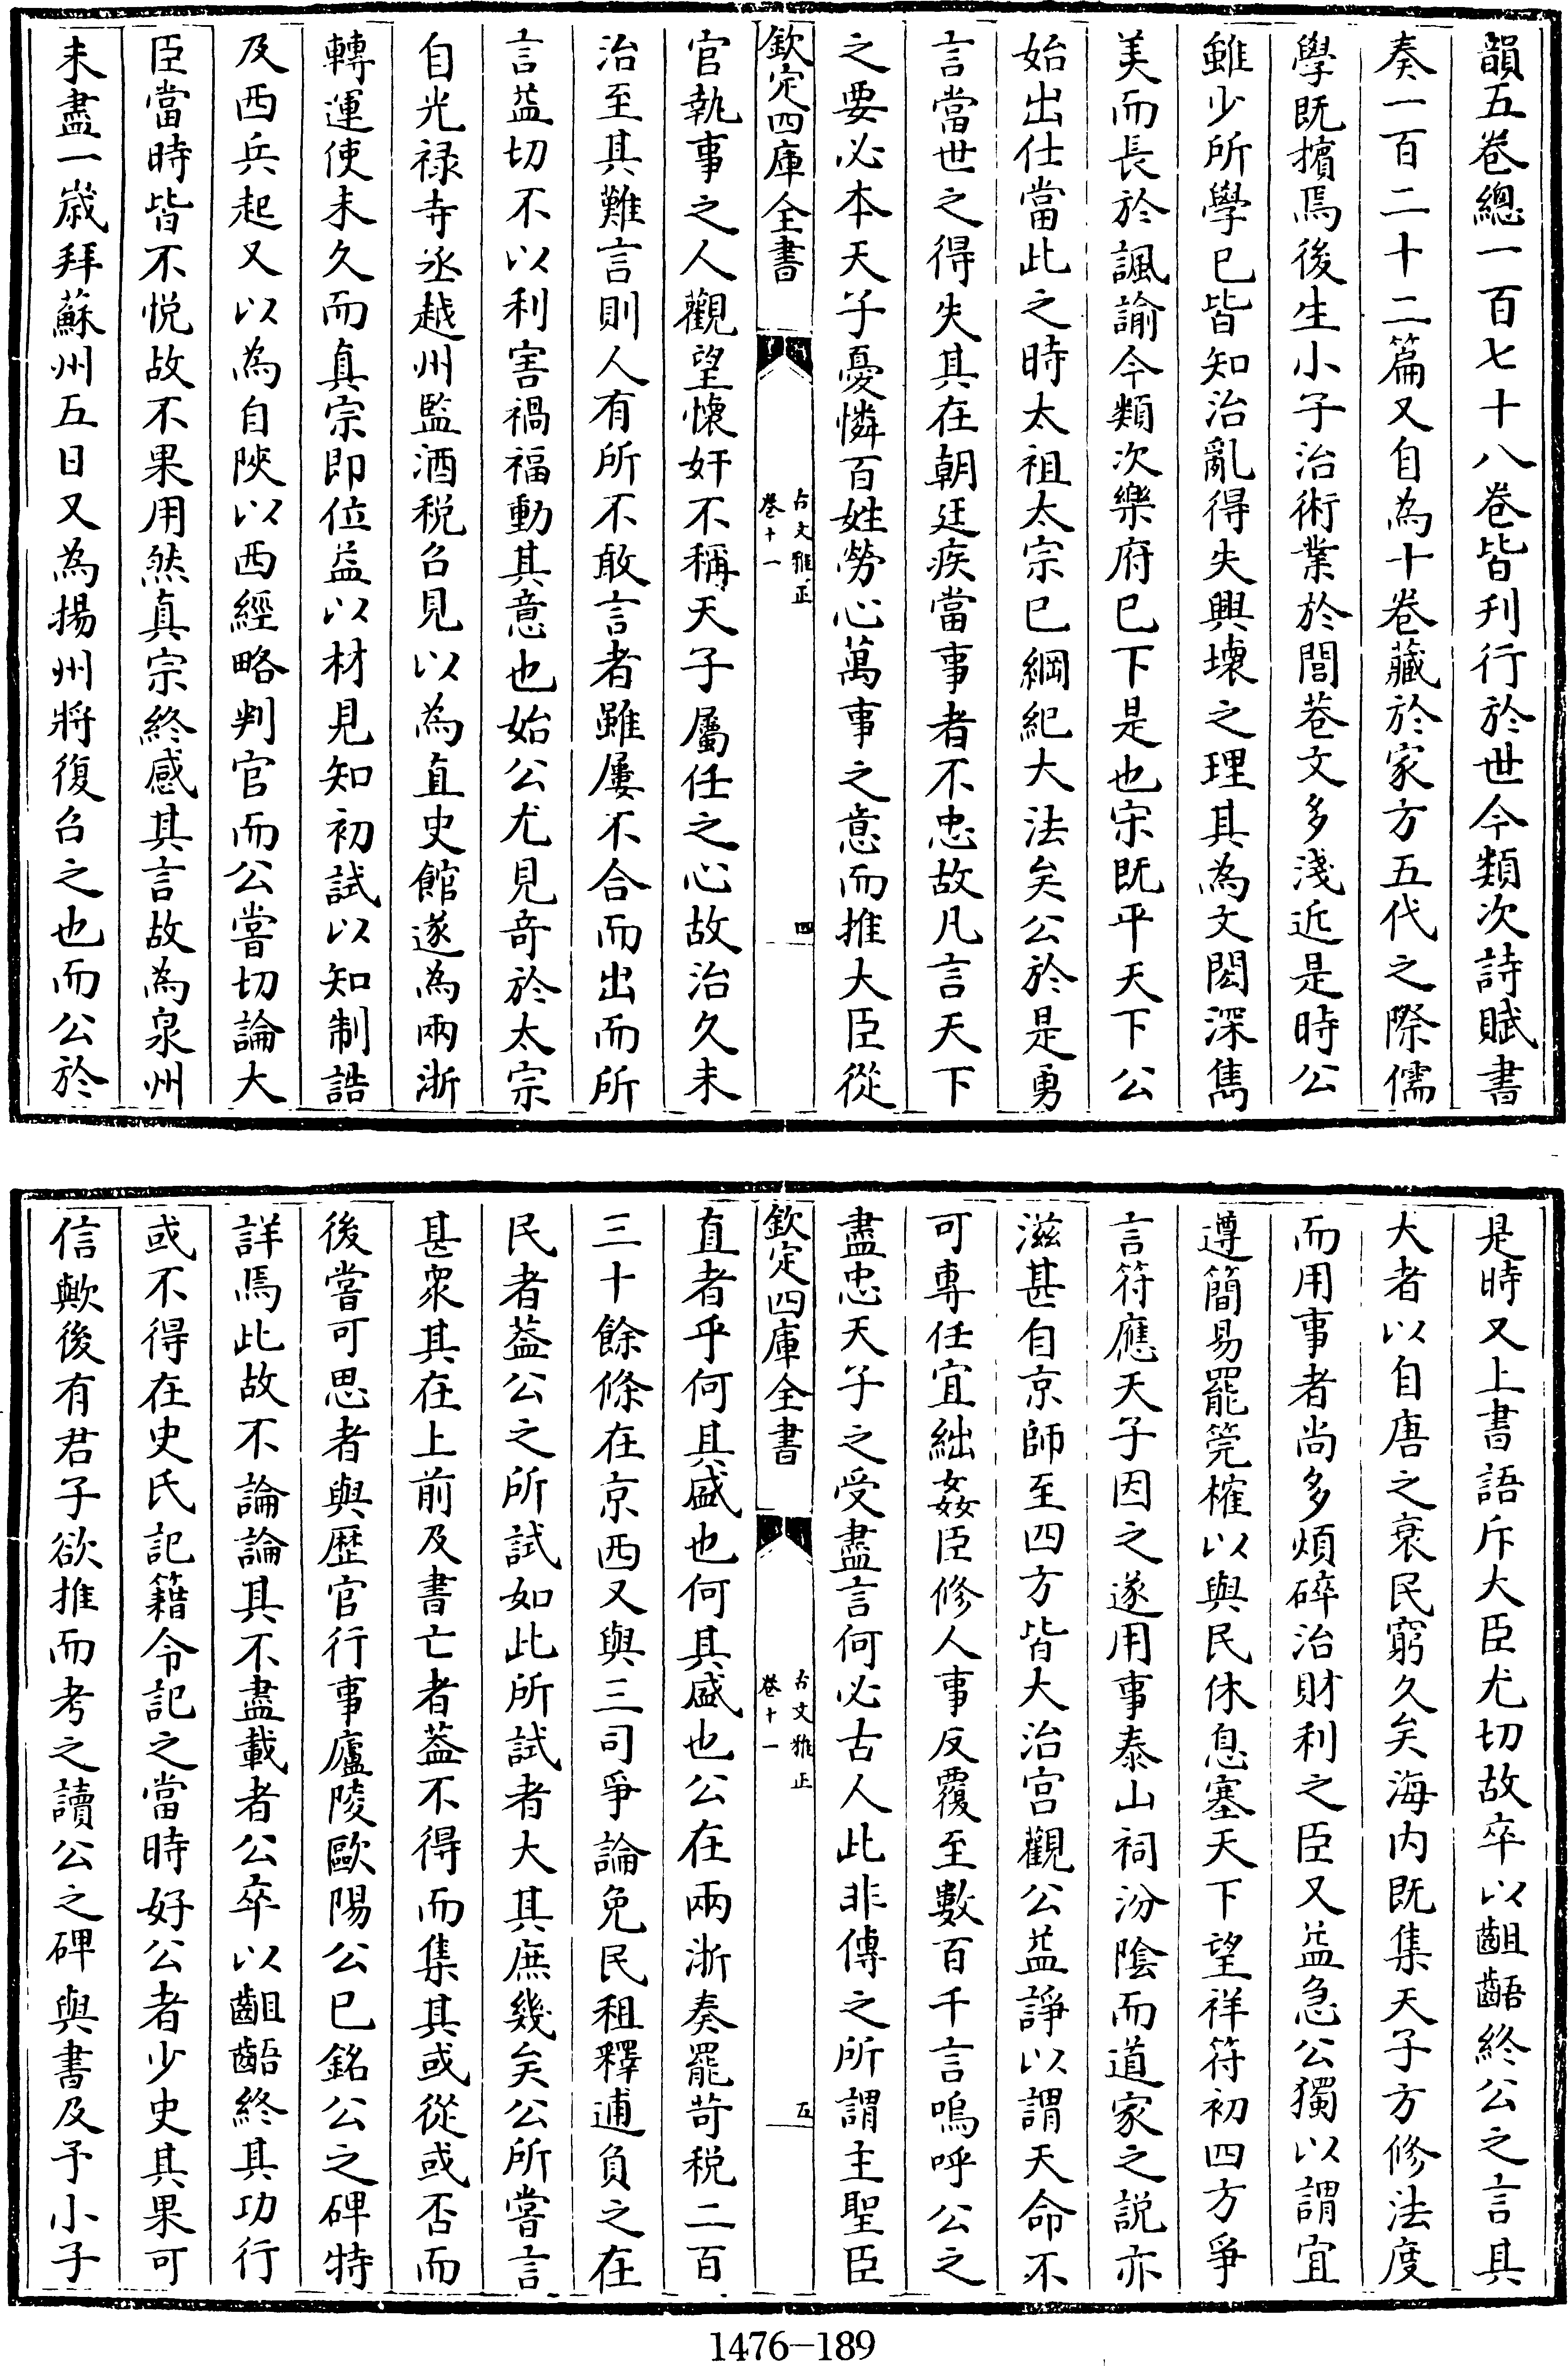 韻五卷總一百七十八卷皆刋行於世今類次詩賦書
奏一百二十二篇又自為十卷藏於家方五代之際儒
學既擯焉後生小子治術業於閭巷文多淺近是時公
雖少所學已皆知治亂得失興壊之理其為文閎深雋
美而長於諷諭今類次樂府已下是也宋既平天下公
始出仕當此之時太祖太宗已綱紀大法矣公於是勇
言當世之得失其在朝廷疾當事者不忠故凡言天下
之要必本天子憂憐百姓勞心萬事之意而推大臣從
欽定四庫全書
古文雅正
卷十一
四
官執事之人觀望懷奸不稱天子屬任之心故治久未
治至其難言則人有所不敢言者雖屢不合而出而所
言益切不以利害禍福動其意也始公尤見竒於太宗
自光禄寺丞越州監酒税召見以為直史館遂為兩浙
轉運使未久而真宗即位益以材見知初試以知制誥
及西兵起又以為自陜以西經略判官而公嘗切論大
臣當時皆不悦故不果用然真宗終感其言故為泉州
未盡一嵗拜蘇州五日又為揚州將復召之也而公於
是時又上書語斥大臣尤切故卒以齟齬終公之言其
大者以自唐之衰民窮久矣海内既集天子方修法度
而用事者尚多煩碎治財利之臣又益急公獨以謂宜
遵簡易罷筦榷以與民休息塞天下望祥符初四方爭
言符應天子因之遂用事泰山祠汾隂而道家之説亦
滋甚自京師至四方皆大治宫觀公益諍以謂天命不
可專任宜絀姦臣修人事反覆至數百千言嗚呼公之
盡忠天子之受盡言何必古人此非傳之所謂主聖臣
欽定四庫全書
古文雅正
卷十一
五
直者乎何其盛也何其盛也公在兩浙奏罷苛税二百
三十餘條在京西又與三司爭論免民租釋逋負之在
民者葢公之所試如此所試者大其庶幾矣公所嘗言
甚衆其在上前及書亡者葢不得而集其或從或否而
後嘗可思者與歴官行事廬陵歐陽公已銘公之碑特
詳焉此故不論論其不盡載者公卒以齟齬終其功行
或不得在史氏記籍令記之當時好公者少史其果可
信歟後有君子欲推而考之讀公之碑與書及予小子
1476-189